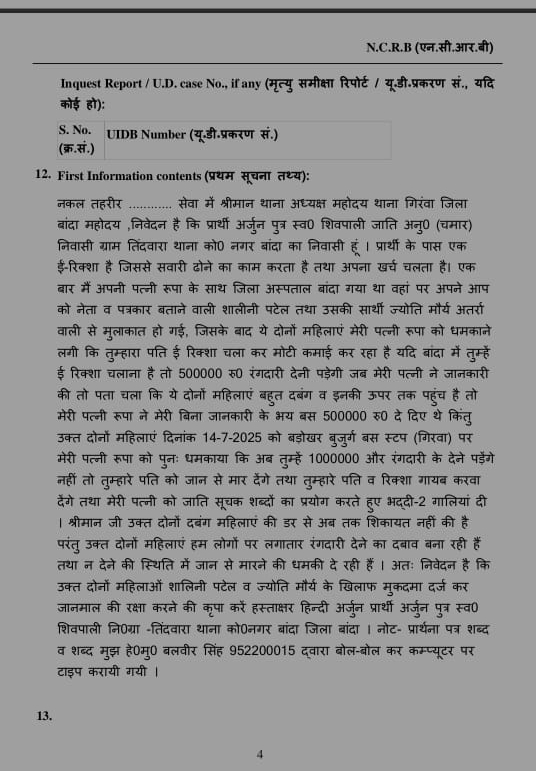 N.C.R.B (एन.सी.आर.बी)
Inquest Report / U.D. case No., if any (मृत्यु समीक्षा रिपोर्ट / यू.डी.प्रकरण सं., यदि
कोई हो):
S. No. UIDB Number (यू.डी.प्रकरण सं.)
(क्र.सं.)
12. First Information contents (प्रथम सूचना तथ्य):
नकल तहरीर ............ सेवा में श्रीमान थाना अध्यक्ष महोदय थाना गिरंवा जिला
बांदा महोदय ,निवेदन है कि प्रार्थी अर्जुन पुत्र स्व0 शिवपाली जाति अनु0 (चमार)
निवासी ग्राम तिंदवारा थाना को0 नगर बांदा का निवासी हूं । प्रार्थी के पास एक
ई-रिक्शा है जिससे सवारी ढोने का काम करता है तथा अपना खर्च चलता है। एक
बार मैं अपनी पत्नी रूपा के साथ जिला अस्पताल बांदा गया था वहां पर अपने आप
को नेता व पत्रकार बताने वाली शालीनी पटेल तथा उसकी सार्थी ज्योति मौर्य अतर्रा
वाली से मुलाकात हो गई, जिसके बाद ये दोनों महिलाएं मेरी पत्नी रूपा को धमकाने
लगी कि तुम्हारा पति ई रिक्शा चला कर मोटी कमाई कर रहा है यदि बांदा में तुम्हें
ई रिक्शा चलाना है तो 500000 रु0 रंगदारी देनी पड़ेगी जब मेरी पत्नी ने जानकारी
की तो पता चला कि ये दोनों महिलाएं बहुत दबंग व इनकी ऊपर तक पहुंच है तो
मेरी पत्नी रूपा ने मेरी बिना जानकारी के भय बस 500000 रु0 दे दिए थे किंतु
उक्त दोनों महिलाएं दिनांक 14-7-2025 को बड़ोखर बुजुर्ग बस स्टप (गिरवा) पर
मेरी पत्नी रूपा को पुनः धमकाया कि अब तुम्हें 1000000 और रंगदारी के देने पड़ेंगे
नहीं तो तुम्हारे पति को जान से मार देंगे तथा तुम्हारे पति व रिक्शा गायब करवा
देंगे तथा मेरी पत्नी को जाति सूचक शब्दों का प्रयोग करते हुए भद्दी-2 गालियां दी
। श्रीमान जी उक्त दोनों दबंग महिलाएं की डर से अब तक शिकायत नहीं की है
परंतु उक्त दोनों महिलाएं हम लोगों पर लगातार रंगदारी देने का दबाव बना रही हैं
तथा न देने की स्थिति में जान से मारने की धमकी दे रही हैं । अतः निवेदन है कि
उक्त दोनों महिलाओं शालिनी पटेल व ज्योति मौर्य के खिलाफ मुकदमा दर्ज कर
जानमाल की रक्षा करने की कृपा करें हस्ताक्षर हिन्दी अर्जुन प्रार्थी अर्जुन पुत्र स्व0
शिवपाली नि0ग्रा -तिंदवारा थाना को0नगर बांदा जिला बांदा । नोट- प्रार्थना पत्र शब्द
व शब्द मुझ हे0मु0 बलवीर सिंह 952200015 द्वारा बोल-बोल कर कम्प्यूटर पर
टाइप करायी गयी ।
13.
4